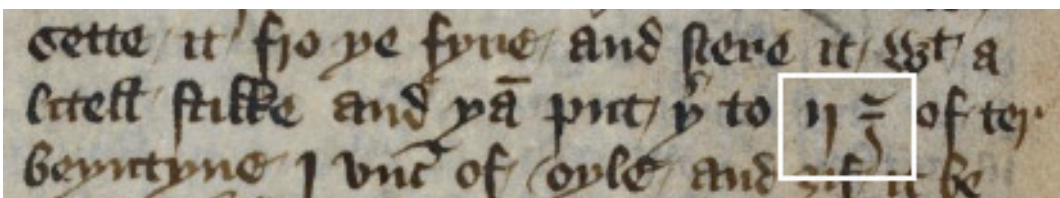 sette it fro ye fyre and stere it wt a
litell stikke and yā put yͬ to ij ℥ of ter
beyntyne j vnc̄ of oyle and ȝif it be